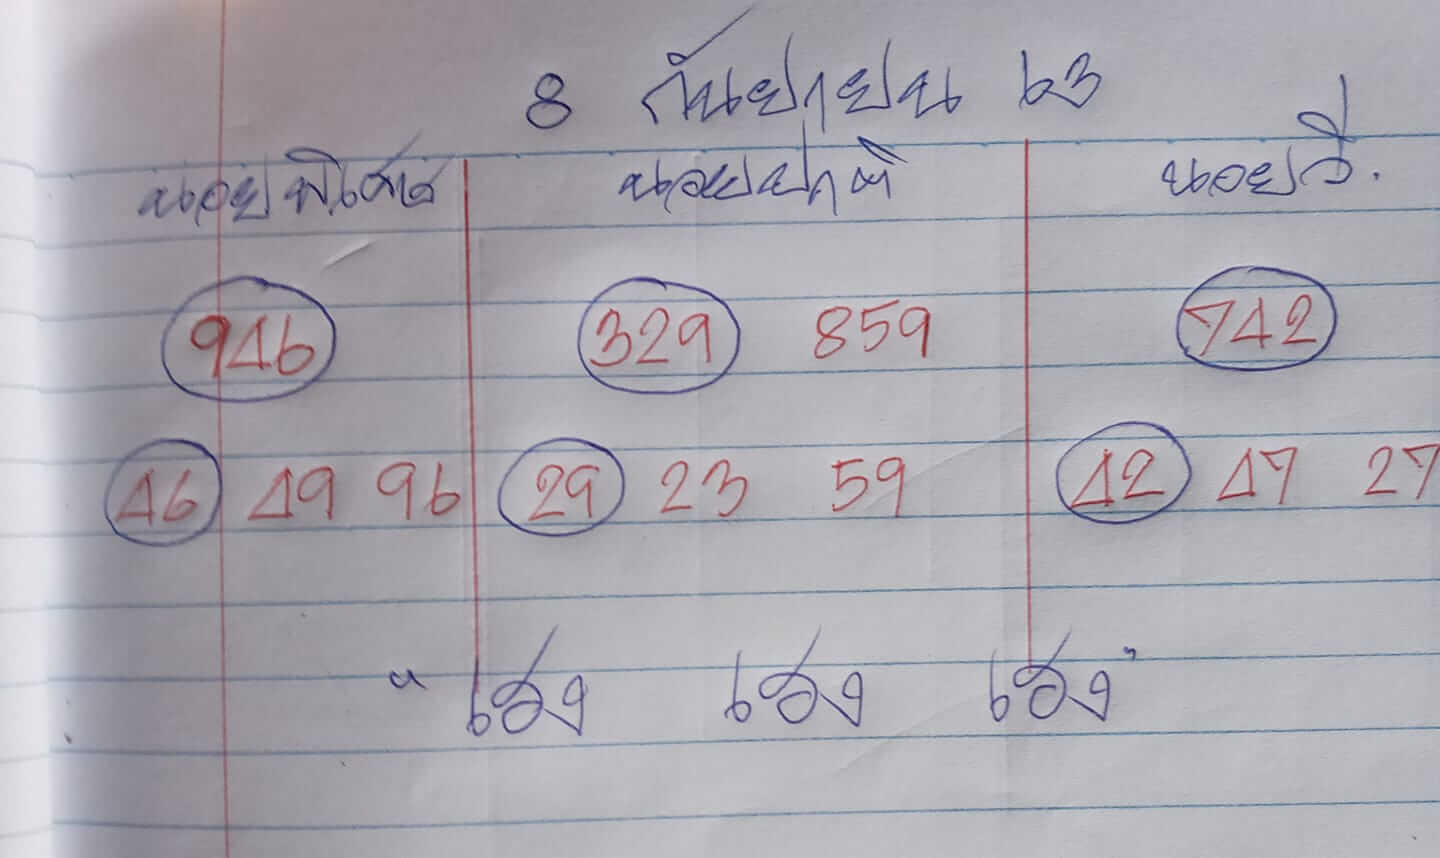 8 กันยายน 63
นอยพิเศษ นอยปกติ นอยวี.
946 329 859 742
46 49 96 29 23 59 42 47 27
"เฮง เฮง เฮง"